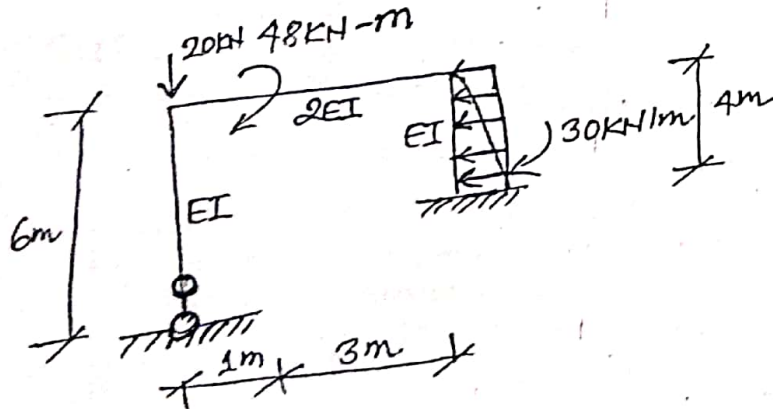 20KN 48KN-m
2EI
EI
30KN/m
4m
EI
6m
1m
3m